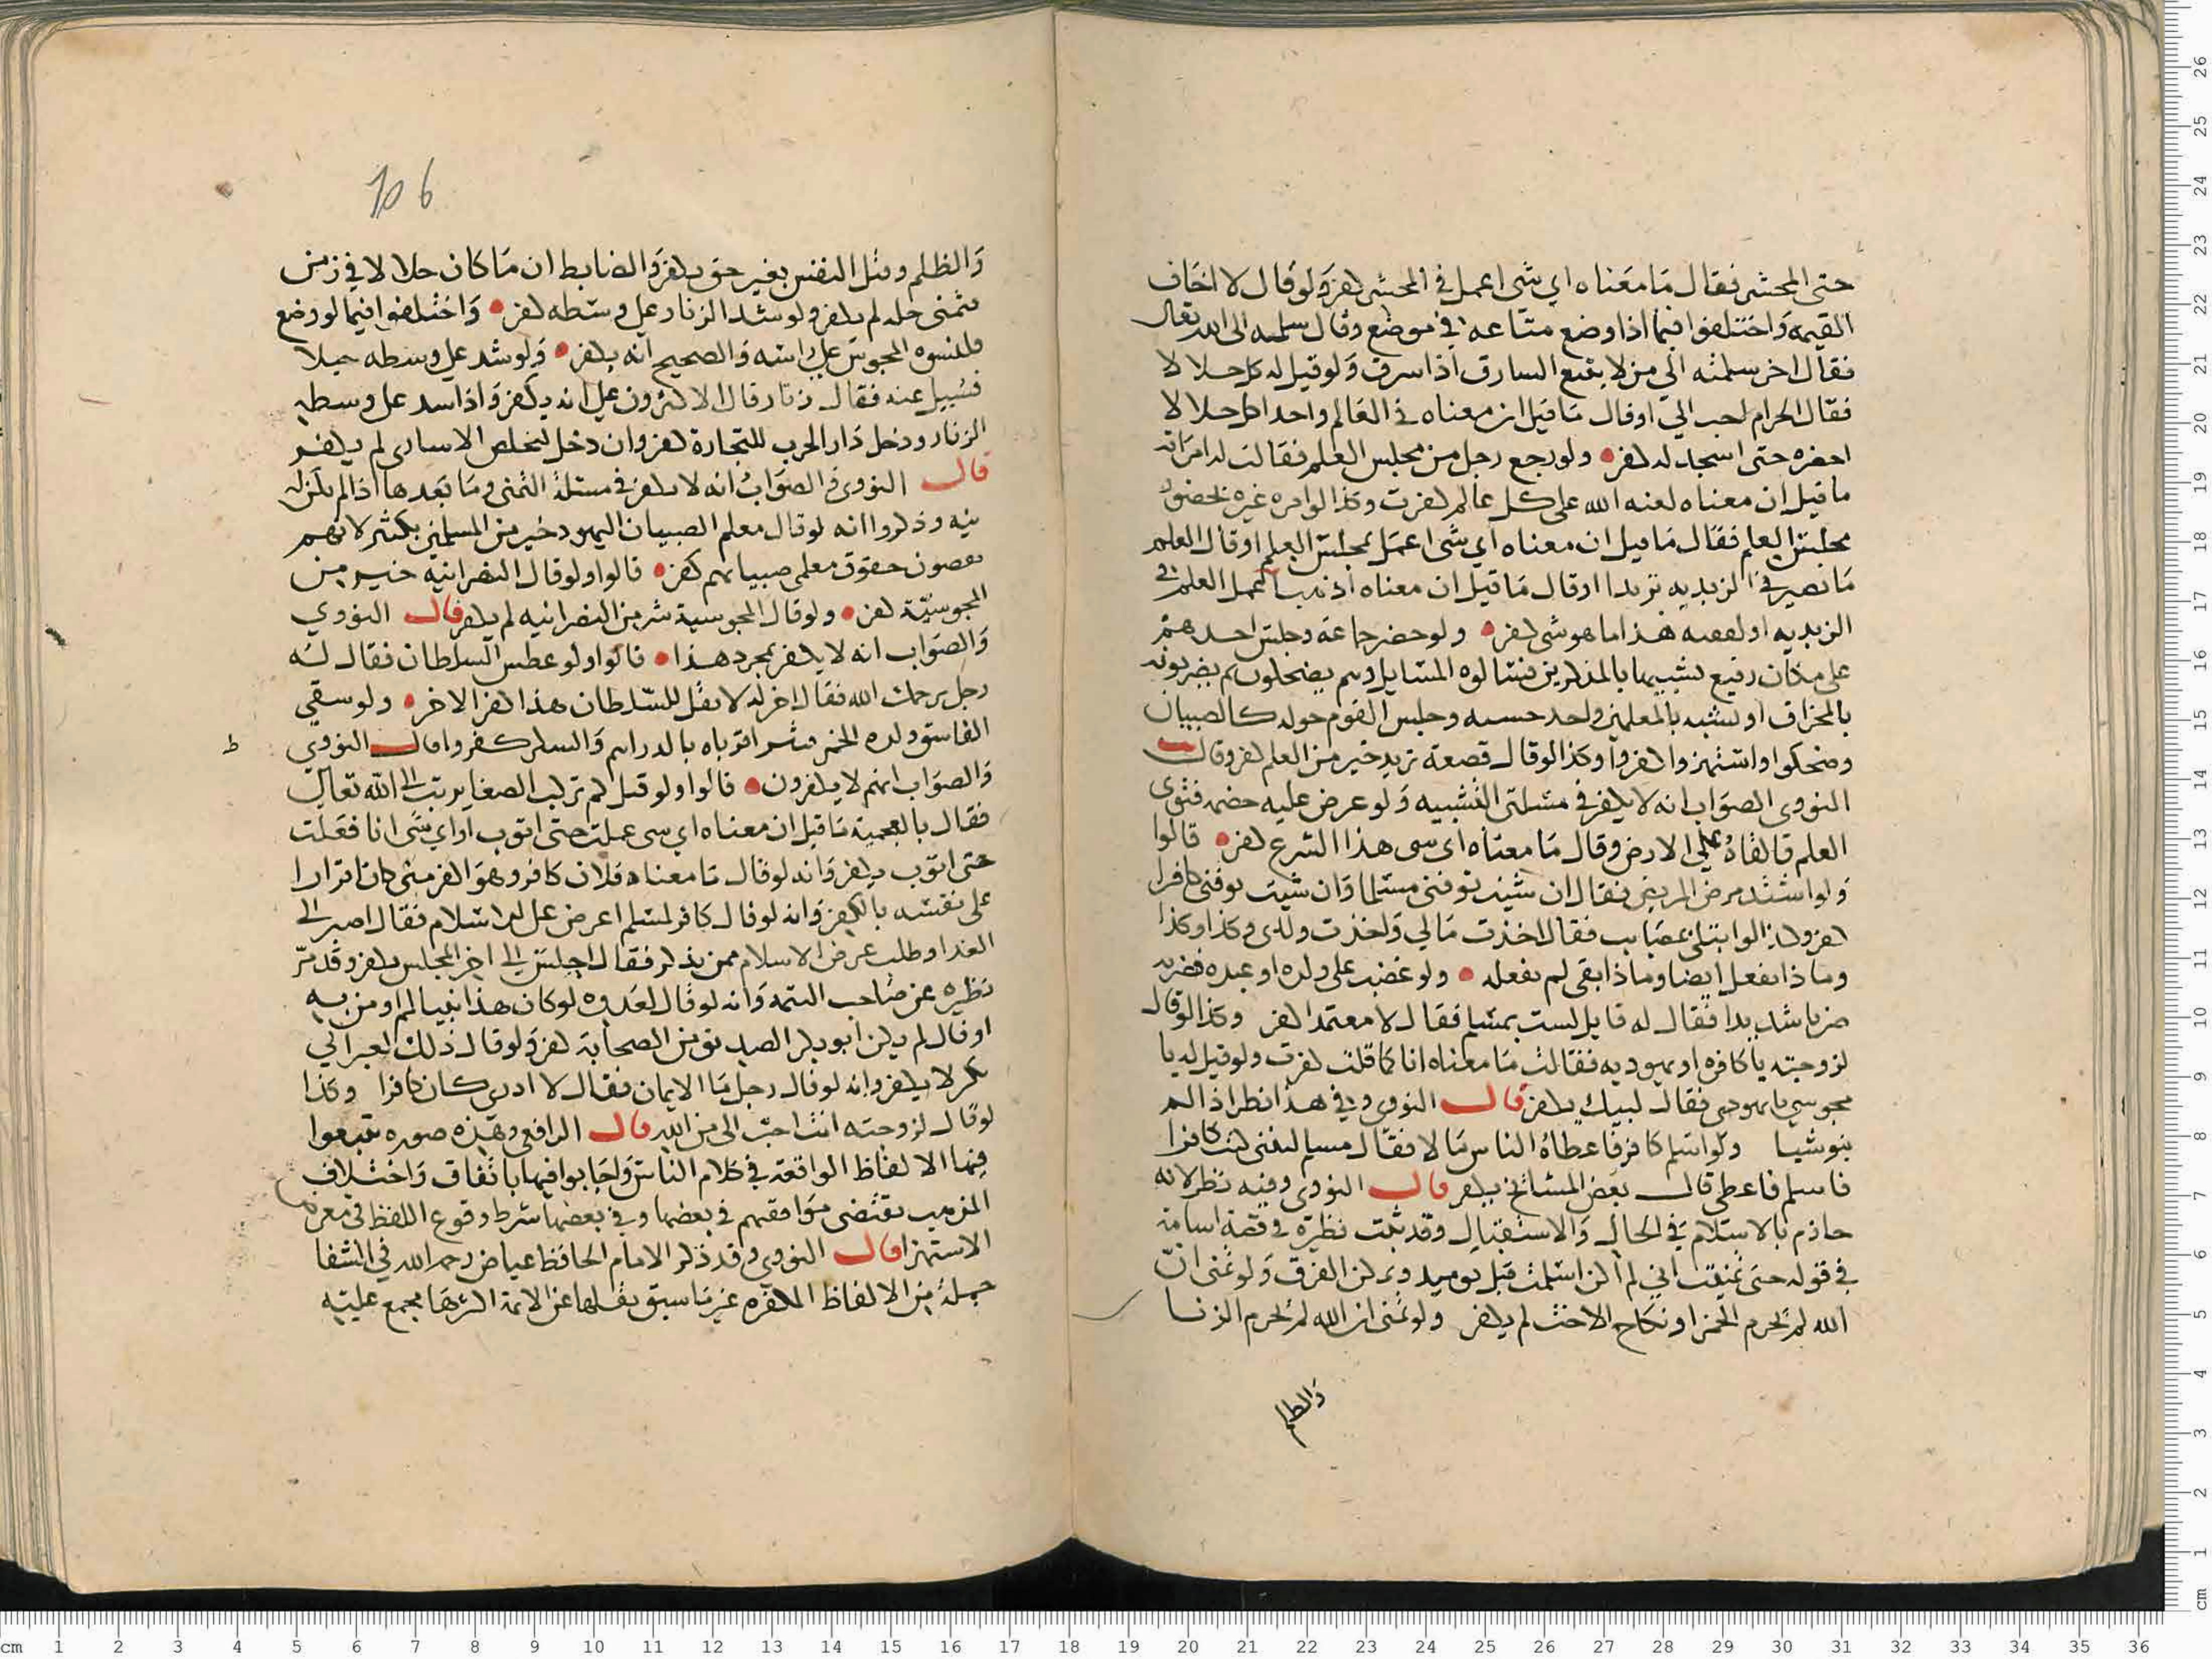 حتى المحشر فقال ما معناه اي شي اعمل في المحشر كفر ولو قال لا اخاف
القيمة واختلفوا فيما اذا وضع متاعه في موضع وقال سلمته الى الله تعالى
فقال اخر سلمته الى من لا يتبع السارق اذا سرق ولو قيل له كل حلالا
فقال الحرام احب الي او قال ما قيل ان معناه في العالم واحد اكل حلالا
احضره حتى اسجد له كفر ولو رجع رجل من مجلس العلم فقالت له امراته
ما قيل ان معناه لعنه الله على كل عالم كفرت وكذا لو امره غيره بحضور
مجلس العلم فقال ما قيل ان معناه اي شي اعمل بمجلس العلم او قال العلم
ما تصير في الزبديه تريدا او قال ما قيل ان معناه العلم في
الزبديه او لقصعه هذا ما هو شي كفر ولو حضر جماعة وجلس احدهم
على مكان رفيع تشبيها بالمذكرين فسالوه المسايل وهم يضحكون ثم يضربونه
بالمخراق او تشبه بالمعلمين واخد خشبه وجلس القوم حوله كالصبيان
وضحكوا واستهزوا كفروا وكذا لو قال قصعة تريد خير من العلم كفر وقال
النووي الصواب انه لا يكفر في مسلتي التشبيه ولو عرض عليه خصمه فتوى
العلم فالقاه على الارض وقال ما معناه اي شي هذا الشرع كفر قالوا
ولو اشتد مرض المريض فقال ان شيت توفني مسلما وان شيت توفني كافرا
كفر وكذا لو ابتلي بمصايب فقال اخذت مالي واخذت ولدي وكذا وكذا
وما ذا تفعل ايضا وما ذا بقي لم تفعله ولو غضب على ولده او عبده فضربه
ضربا شديدا فقال له قايل لست بمسلم فقال لا معتمدا كفر وكذا لو قال
لزوجته يا كافره او يهوديه فقالت ما معناه انا كما قلت كفرت ولو قيل له يا
مجوسي يا يهودي فقال لبيك يكفر قال النووي وفي هذا نظر اذا لم
ينو شيا ولو اسلم كافر فاعطاه الناس مالا فقال مسلم ليتني كنت كافرا
فاسلم فاعطى قال بعض المشايخ يكفر قال النووي وفيه نظر لانه
جازم بالاسلام في الحال والاستقبال وقد ثبت نظيره في قصة اسامة
في قوله حتى تمنيت اني لم اكن اسلمت قبل يوميد ويمكن الفرق ولو تمنى ان
الله لم يحرم الخمر او نكاح الاخت لم يكفر ولو تمنى ان الله لم يحرم الزنا
والظلم
106
والظلم وقتل النفس بغير حق يكفر والضابط ان ما كان حلالا في زمن
فتمنى حله لم يكفر ولو شد الزنار على وسطه كفر واختلفوا فيما لو وضع
قلنسوه المجوس على راسه والصحيح انه يكفر ولو شد على وسطه حبلا
فسيل عنه فقال زنار قال الاكثرون على انه يكفر واذا شد على وسطه
الزنار ودخل دار الحرب للتجارة كفر وان دخل لتخلص الاسارى لم يكفر
قال النووي والصواب انه لا يكفر في مسئلة التمني وما بعدها اذا لم يكن له
نيه وذكروا انه لو قال معلم الصبيان اليهود خير من المسلمين بكثير لانهم
يقضون حقوق معلمي صبيانهم كفر قالوا ولو قال النصرانيه خير من
المجوسية كفر ولو قال المجوسية شر من النصرانيه لم يكفر قال النووي
والصواب انه لا يكفر بمجرد هذا قالوا ولو عطس السلطان فقال له
رجل يرحمك الله فقال اخر له لا تقل للسلطان هذا كفر الاخر ولو سقى
الفاسق ولده الخمر فنثر اقرباه بالدراهم والسكر كفروا قال النووي
ط
والصواب انهم لا يكفرون قالوا ولو قيل لمرتكب الصغاير تب الى الله تعالى
فقال بالعجمية ما قيل ان معناه اي شي عملت حتى اتوب او اي شي انا فعلت
حتى اتوب يكفر وانه لو قال ما معناه فلان كافر وهو اكفر مني كان اقرارا
على نفسه بالكفر وانه لو قال كافر لمسلم اعرض علي الاسلام فقال اصبر الى
الغد او طلب عرض الاسلام ممن يذكر فقال اجلس الى اخر المجلس يكفر وقد مر
نظيره عن صاحب التتمه وانه لو قال لعدوه لو كان هذا نبيا لم اومن به
او قال لم يكن ابو بكر الصديق من الصحابة كفر ولو قال ذلك لغير ابي
بكر لا يكفر وانه لو قال رجل ما الايمان فقال لا ادري كان كافرا وكذا
لو قال لزوجته انت احب الى من الله قال الرافعي وهذه صوره تتبعوا
فيها الالفاظ الواقعة في كلام الناس واجابوا فيها باتفاق واختلاف
المذهب يقتضي موافقتهم في بعضها وفي بعضها شرط وقوع اللفظ في معرض
الاستهزا قال النووي وقد ذكر الامام الحافظ عياض رحمه الله في الشفا
جملة من الالفاظ المكفره غير ما سبق نقلها عن الائمة اكثرها مجمع عليه